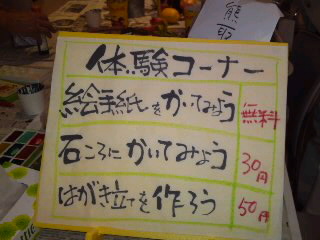 熊取
体験コーナー
絵手紙をかいてみよう 無料
石ころにかいてみよう 30円
はがき立てを作ろう 50円